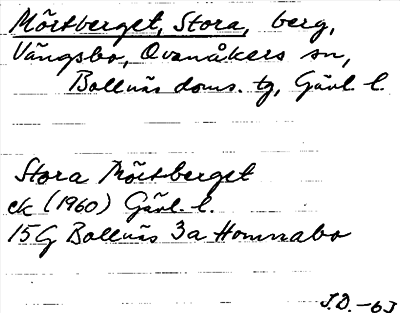 Mörtberget, Stora, berg,
Vängsbo, Ovanåkers sn,
Bollnäs doms. tg, Gävl. l.
Stora Mörtberget
ek (1960) Gävl. l.
15G Bollnäs 3a Homnabo
J.D. -63